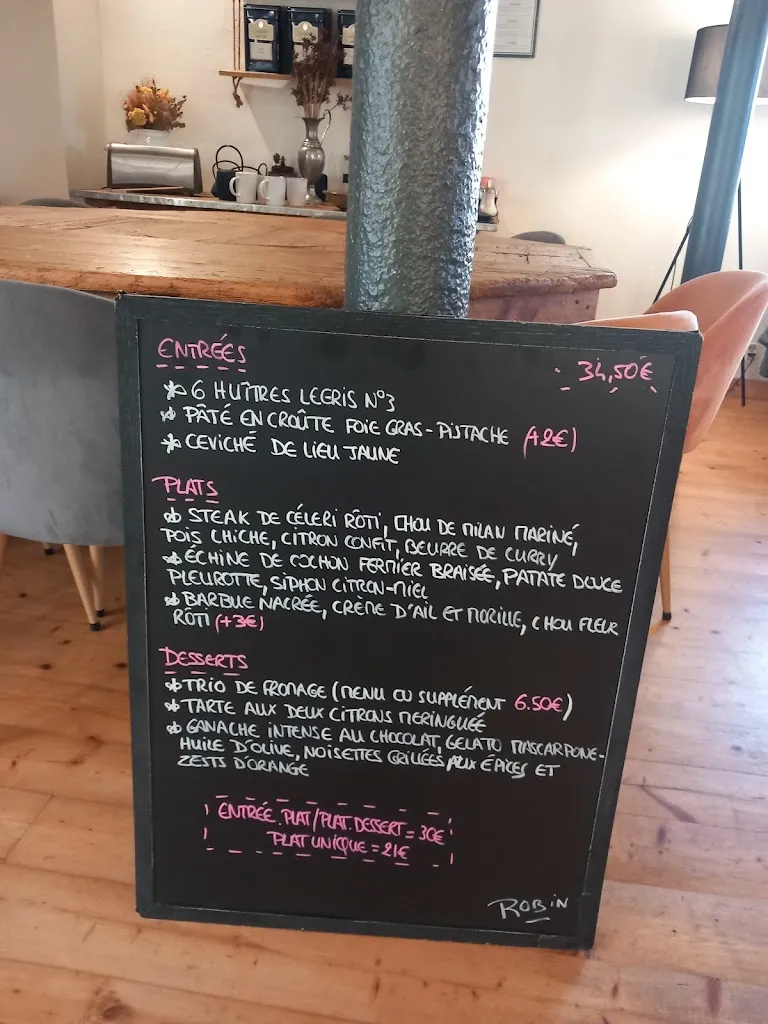 ENTRÉES
34,50€
* 6 HUÎTRES LEGRIS N°3
* PÂTÉ EN CROÛTE FOIE GRAS - PISTACHE (+2€)
* CEVICHÉ DE LIEU JAUNE
PLATS
* STEAK DE CÉLERI RÔTI, CHOU DE MILAN MARINÉ,
POIS CHICHE, CITRON CONFIT, BEURRE DE CURRY
* ÉCHINE DE COCHON FERMIER BRAISÉE, PATATE DOUCE
PLEUROTTE, SIPHON CITRON-MIEL
* BARBUE NACRÉE, CRÈME D'AIL ET MORILLE, CHOU FLEUR
RÔTI (+3€)
DESSERTS
* TRIO DE FROMAGE (MENU OU SUPPLÉMENT 6.50€)
* TARTE AUX DEUX CITRONS MERINGUÉE
* GANACHE INTENSE AU CHOCOLAT, GELATO MASCARPONE-
HUILE D'OLIVE, NOISETTES GRILLÉES AUX ÉPICES ET
ZESTS D'ORANGE
ENTRÉE.PLAT/PLAT.DESSERT = 30€
PLAT UNIQUE = 21€
ROBIN